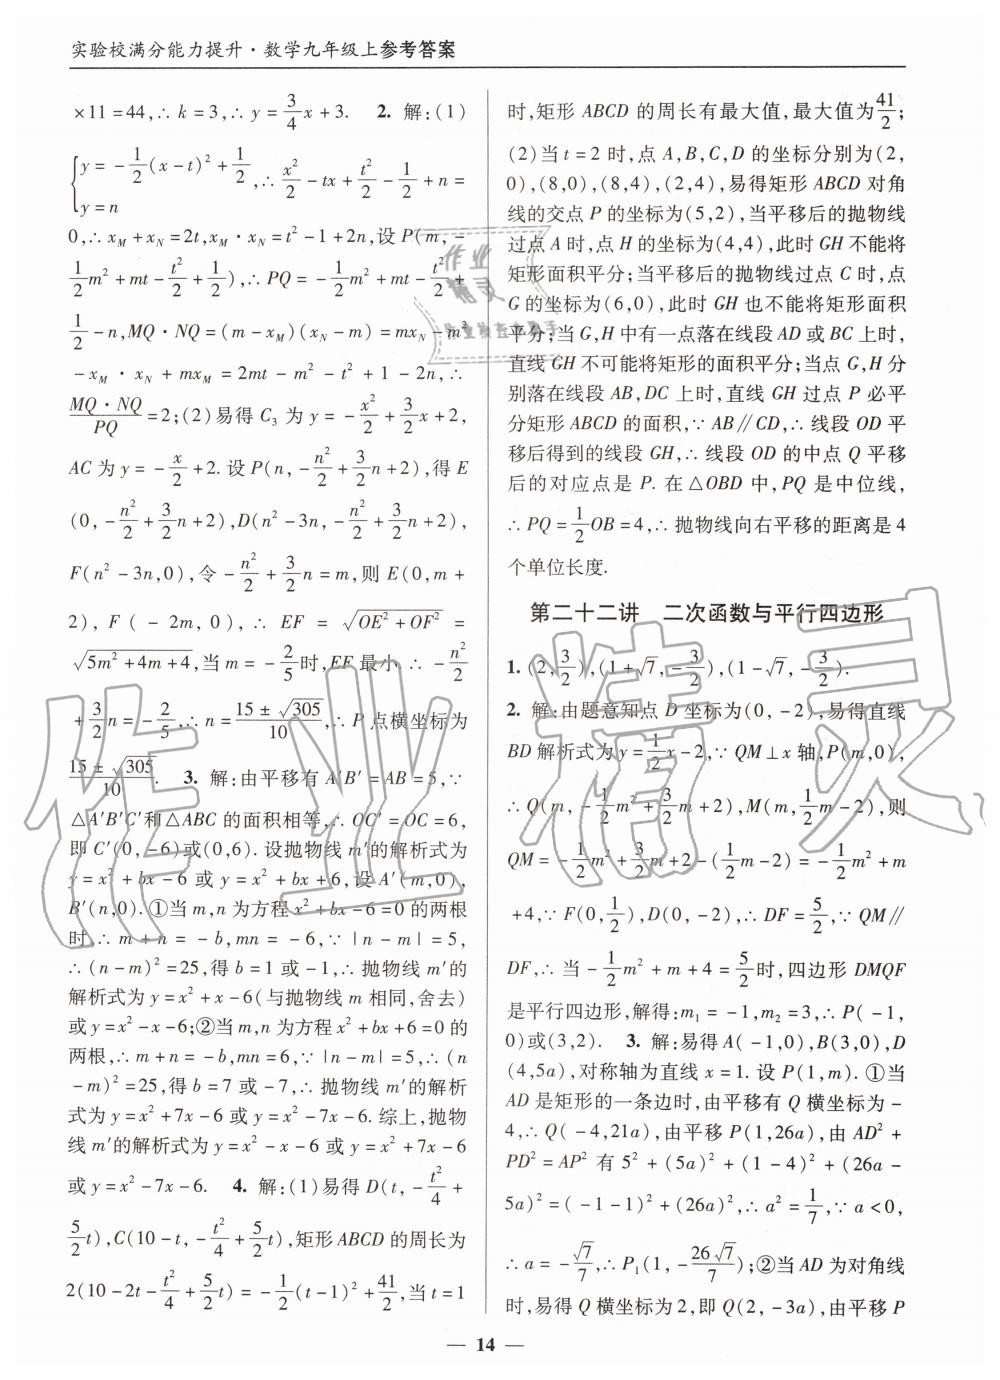 实验校满分能力提升·数学九年级上参考答案
×11=44,∴k=3,∴y=3/4x+3. 2. 解:(1)
{y=-1/2(x-t)²+1/2
y=n ,∴x²/2-tx+t²/2-1/2+n=
0,∴x_M+x_N=2t,x_M·x_N=t²-1+2n,设P(m,-
1/2m²+mt-t²/2+1/2),∴PQ=-1/2m²+mt-t²/2+
1/2-n,MQ·NQ=(m-x_M)(x_N-m)=mx_N-m²
-x_M·x_N+mx_M=2mt-m²-t²+1-2n,∴
MQ·NQ/PQ=2;(2)易得C₃为y=-x²/2+3/2x+2,
AC为y=-x/2+2.设P(n,-n²/2+3/2n+2),得E
(0,-n²/2+3/2n+2),D(n²-3n,-n²/2+3/2n+2),
F(n²-3n,0),令-n²/2+3/2n=m,则E(0,m+
2),F(-2m,0),∴EF=√(OE²+OF²)=
√(5m²+4m+4),当m=-2/5时,EF最小.∴-n²/2
+3/2n=-2/5,∴n=(15±√305)/10,∴P点横坐标为
(15±√305)/10. 3. 解:由平移有A′B′=AB=5,∵
△A′B′C′和△ABC的面积相等,∴OC′=OC=6,
即C′(0,-6)或(0,6).设抛物线m′的解析式为
y=x²+bx-6或y=x²+bx+6,设A′(m,0),
B′(n,0).①当m,n为方程x²+bx-6=0的两根
时,∴m+n=-b,mn=-6,∵|n-m|=5,
∴(n-m)²=25,得b=1或-1,∴抛物线m′的
解析式为y=x²+x-6(与抛物线m相同,舍去)
或y=x²-x-6;②当m,n为方程x²+bx+6=0的
两根,∴m+n=-b,mn=6,∵|n-m|=5,∴(n
-m)²=25,得b=7或-7,∴抛物线m′的解析
式为y=x²+7x-6或y=x²-7x-6.综上,抛物
线m′的解析式为y=x²-x-6或y=x²+7x-6
或y=x²-7x-6. 4. 解:(1)易得D(t,-t²/4+
5/2t),C(10-t,-t²/4+5/2t),矩形ABCD的周长为
2(10-2t-t²/4+5/2t)=-1/2(t-1)²+41/2,当t=1
时,矩形ABCD的周长有最大值,最大值为41/2;
(2)当t=2时,点A,B,C,D的坐标分别为(2,
0),(8,0),(8,4),(2,4),易得矩形ABCD对角
线的交点P的坐标为(5,2),当平移后的抛物线
过点A时,点H的坐标为(4,4),此时GH不能将
矩形面积平分;当平移后的抛物线过点C时,点
G的坐标为(6,0),此时GH也不能将矩形面积
平分;当G,H中有一点落在线段AD或BC上时,
直线GH不可能将矩形的面积平分;当点G,H分
别落在线段AB,DC上时,直线GH过点P必平
分矩形ABCD的面积,∵AB∥CD,∴线段OD平
移后得到的线段GH,∴线段OD的中点Q平移
后的对应点是P.在△OBD中,PQ是中位线,
∴PQ=1/2OB=4,∴抛物线向右平移的距离是4
个单位长度.
第二十二讲 二次函数与平行四边形
1. (2,3/2),(1+√7,-3/2),(1-√7,-3/2).
2. 解:由题意知点D坐标为(0,-2),易得直线
BD解析式为y=1/2x-2,∵QM⊥x轴,P(m,0),
∴Q(m,-1/2m²+3/2m+2),M(m,1/2m-2),则
QM=-1/2m²+3/2m+2-(1/2m-2)=-1/2m²+m
+4,∵F(0,1/2),D(0,-2),∴DF=5/2,∵QM∥
DF,∴当-1/2m²+m+4=5/2时,四边形DMQF
是平行四边形,解得:m₁=-1,m₂=3,∴P(-1,
0)或(3,2). 3. 解:易得A(-1,0),B(3,0),D
(4,5a),对称轴为直线x=1.设P(1,m).①当
AD是矩形的一条边时,由平移有Q横坐标为-
4,∴Q(-4,21a),由平移P(1,26a),由AD²+
PD²=AP²有5²+(5a)²+(1-4)²+(26a-
5a)²=(-1-1)²+(26a)²,∴a²=1/7,∵a<0,
∴a=-√7/7,∴P₁(1,-26√7/7);②当AD为对角线
时,易得Q横坐标为2,即Q(2,-3a),由平移P
— 14 —
作业精灵
作业
精灵